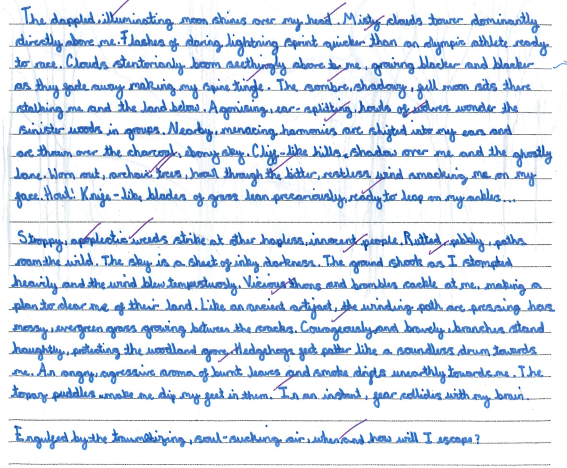 The dappled, illuminating moon shines over my head. Misty clouds tower dominantly
directly above me. Flashes of daring lightning sprint quicker than an olympic athlete ready
to race. Clouds stentorianly boom seethingly above to me, growing blacker and blacker
as they fade away making my spine tingle. The sombre, shadowy, full moon sits there
stalking me and the land below. Agonising, ear-splitting, howls of wolves wonder the
sinister woods in groups. Nearby, menacing harmonies are shifted into my ears and
are thrown over the charcoal, ebony sky. Cliff-like hills, shadow over me and the ghostly
lane. Worn out, archaic trees, howl through the bitter, restless wind smacking me on my
face. Howl! Knife-like blades of grass lean precariously, ready to leap on my ankles...
Stroppy, apoplectic weeds strike at other hapless, innocent people. Rutted, pebbly, paths
roam the wild. The sky is a sheet of inky darkness. The ground shoots as I stomped
heavily and the wind blew tempestuously. Vicious thorns and brambles cackle at me, making a
plan to clear me of their land. Like an ancient artifact, the winding path are pressing has
mossy, evergreen grass growing between the cracks. Courageously and bravely, branches stand
haughtily, protecting the woodland gore. Hedgehogs feet patter like a soundless drum towards
me. An angry, agressive aroma of burnt leaves and smoke drifts unearthly towards me. The
topaz puddles make me dip my feet in them. In an instant, fear collides with my brain.
Engulfed by the traumatizing, soul-sucking air, when and how will I escape?